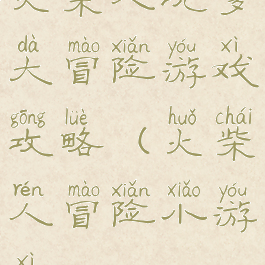 dà mào xiǎn yóu xì
大冒险游戏
gōng lüè huǒ chái
攻略（火柴
rén mào xiǎn xiǎo yóu
人冒险小游
xì